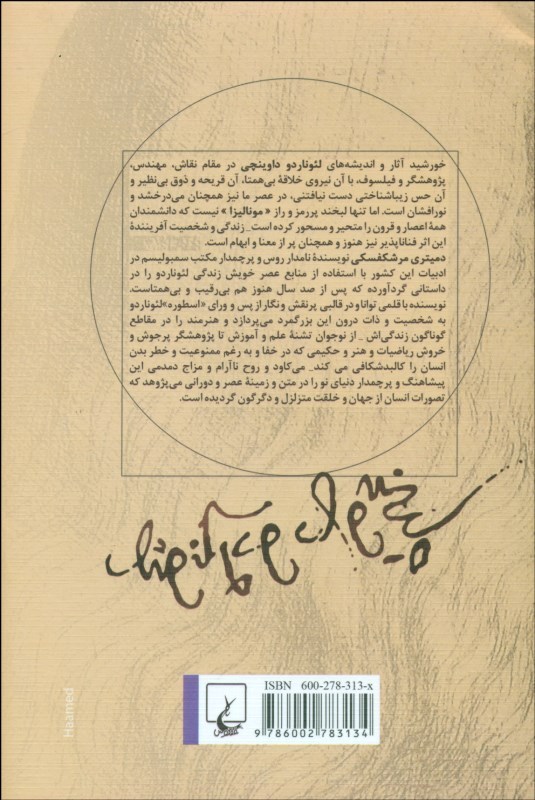 خورشید آثار و اندیشه‌های لئوناردو داوینچی در مقام نقاش، مهندس،
پژوهشگر و فیلسوف، با آن نیروی خلاقهٔ بی‌همتا، آن قریحه و ذوق بی‌نظیر و
آن حس زیباشناختی دست نیافتنی، در عصر ما نیز همچنان می‌درخشد و
نورافشان است. اما تنها لبخند پررمز و راز «مونالیزا» نیست که دانشمندان
همهٔ اعصار و قرون را متحیر و مسحور کرده است_ زندگی و شخصیت آفرینندهٔ
این اثر فناناپذیر نیز هنوز و همچنان پر از معنا و ابهام است.
دمیتری مرشکفسکی نویسندهٔ نامدار روس و پرچمدار مکتب سمبولیسم در
ادبیات این کشور با استفاده از منابع عصر خویش زندگی لئوناردو را در
داستانی گردآورده که پس از صد سال هنوز هم بی‌رقیب و بی‌همتاست.
نویسنده با قلمی توانا و در قالبی پرنقش و نگار از پس و ورای «اسطوره» لئوناردو
به شخصیت و ذات درون این بزرگمرد می‌پردازد و هنرمند را در مقاطع
گوناگون زندگی‌اش _ از نوجوان تشنهٔ علم و آموزش تا پژوهشگر پرجوش و
خروش ریاضیات و هنر و حکیمی که در خفا و به رغم ممنوعیت و خطر بدن
انسان را کالبدشکافی می کند_ می‌کاود و روح ناآرام و مزاج دمدمی این
پیشاهنگ و پرچمدار دنیای نو را در متن و زمینهٔ عصر و دورانی می‌پژوهد که
تصورات انسان از جهان و خلقت متزلزل و دگرگون گردیده است.
ISBN 600-278-313-x
9 786002 783134
ققنوس
Haamed